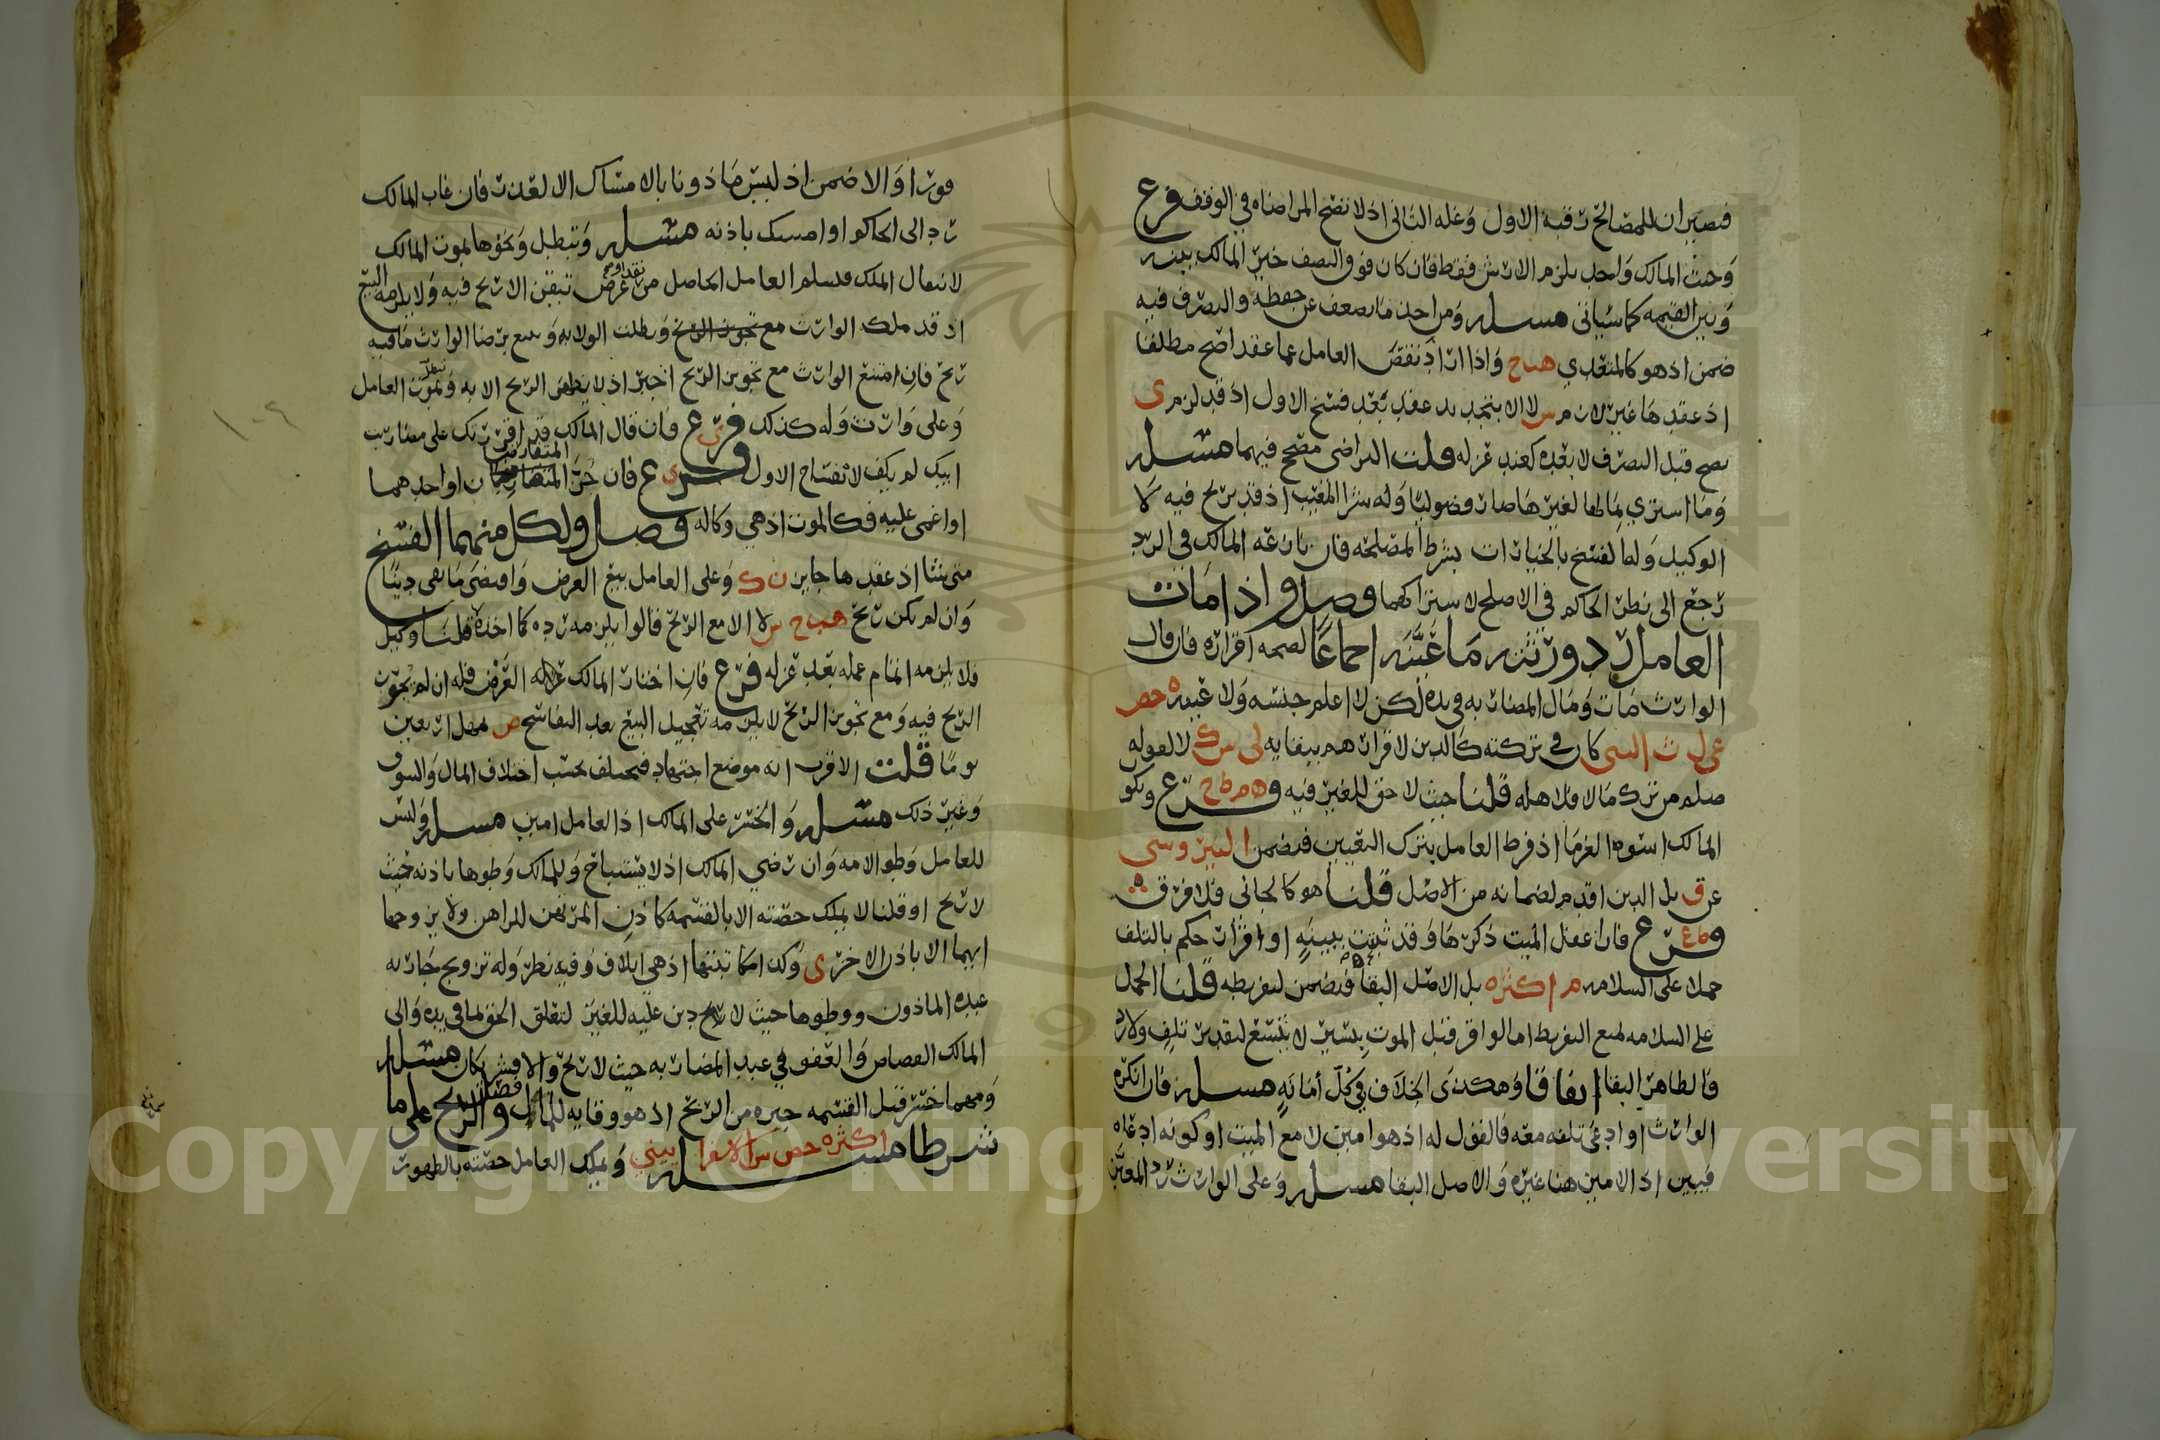 فتصير ان للمصالح رقبة الاول وغله الثانى اذ لا تصح المراضاه في الوقف فرع
وحيث المالك واحد يلزم الارش فقط فان كان فوق النصف خير المالك بينه
وبين القيمه كما سياتى مسله ومن احذ مال يضعف عن حفظه والتصرف فيه
ضمن اذ هو كالمتعدي هب ح واذا اراد نقض العامل عما عقد اصح مطلقا
اذ عقدها غير لازم س لا الا بتجديد عقد بعد فسخ الاول اذ قد لزم ى
يصح قبل التصرف لا بعده كعند عزله قلت التراضى مصح فيهما مسله
وما اشترى بمالها لغيرها صار فضوليا وله شرا المعيب اذ قد يربح فيه لا
الوكيل ولها الفسخ بالخيارات بشرط المصلحه فان نازعه المالك في الرد
رجع الى نظر الحاكم في الاصلح لاشتراكهما فصل واذا مات
العامل رد ورثته ما عينه اجماعا لصحه اقراره فان قال
الوارث مات ومال المضاربه في يده لكن لا اعلم جنسه ولا عينه حص
كان في تركته كالدين لاقرارهم ببقايه لى س ك لا لقوله
صلعم من ترك مالا فلاهله قلنا حيث لا حق للغير فيه فرع وبكو
المالك اسوه الغرما اذ فرط العامل بترك التعيين فيضمن
عن ق بل الدين اقدم لضمانه من الاصل قلنا هو كالجانى فلا فرق
فرع فان اغفل الميت ذكرها وقد ثبتت ببينه او اقرار حكم بالتلف
حملا على السلامه م اكثره بل الاصل البقا فيضمن لتفريطه قلنا الحمل
على السلامه لمنع التفريط اما لو اقر قبل الموت بيسير لا يتسع لتقدير تلف ولا رد
فالظاهر البقا اتفاقا وهكذى الخلاف في كل أمانه مسله فان انكره
الوارث او ادعى تلفه معه فالقول له اذ هو امين لا مع الميت او كونه ادعاه
فيبين اذ الامين هنا غيره والاصل البقا مسله وعلى الوارث رد المعين
فورا والا ضمن اذ ليس ماذونا بالامساك الا لعذر فان غاب المالك
رد الى الحاكم او امسك باذنه مسله وتبطل ونحوها بموت المالك
لانتقال الملك فيسلم العامل الحاصل من نقد او عرض تيقن الا ربح فيه ولا يلزمه البيع
اذ قد ملك الوارث مع تجويز الربح وبطلت الولايه ويبيع برضا الوارث ما فيه
ربح فان امتنع الوارث مع تجويز الربح اجبر اذ لا يظهر الربح الا به وبموت العامل
وعلى وارثه وله كذلك فرع وان قال المالك قد اقررتك على مضاربه
ابيك لم يكف لانفساخ الاول فرع فان جن المتقارضان او احدهما
او اغمى عليه فكالموت اذ هي وكاله فصل ولكل منهما الفسخ
متى شا اذ عقدها جايز ن ك وعلى العامل بيع العرض واقتضى ما بقى دينا
وان لم يكن ربح هب ح س لا الا مع الربح قالوا يلزمه رده كما اخذه قلنا وكيل
فلا يلزمه اتمام عمله بعد عزله فرع فان اختار المالك عزله العرض فله ان لم يجوز
الربح فيه ومع تجويز الربح لا يلزمه تعجيل البيع بعد التفاسخ ص يمهل اربعين
يوما قلت الاقرب انه موضع اجتهاد فيختلف بحسب اختلاف المال والسوق
وغير ذلك مسله والخسر على المالك اذ العامل امين مسله وليس
للعامل وطو الامه وان رضي المالك اذ لا يستباح وللمالك وطوها باذنه حيث
لا ربح او قلنا لا يملك حصته الا بالقسمه كاذن المرتهن للراهن ولا يزوجها
ايهما الا باذن الاخر ى وكذا مكاتبتها اذ هي اتلاف وفيه نظر وله تزويج جاريه
عبده الماذون ووطوها حيث لا ربح دين عليه للغير لتعلق الحق بما في يده والى
المالك القصاص والعفو في عبد المضاربه حيث لا ربح والا فشريكان مسله
ومهما خسر قبل القسمه جبره من الربح اذ هو وقايه للمال فصل والربح على ما
شرطا مسله اكثره حص س الاسفرايينى ويملك العامل حصته بالظهور
١٠٩
Copyright © King Saud University